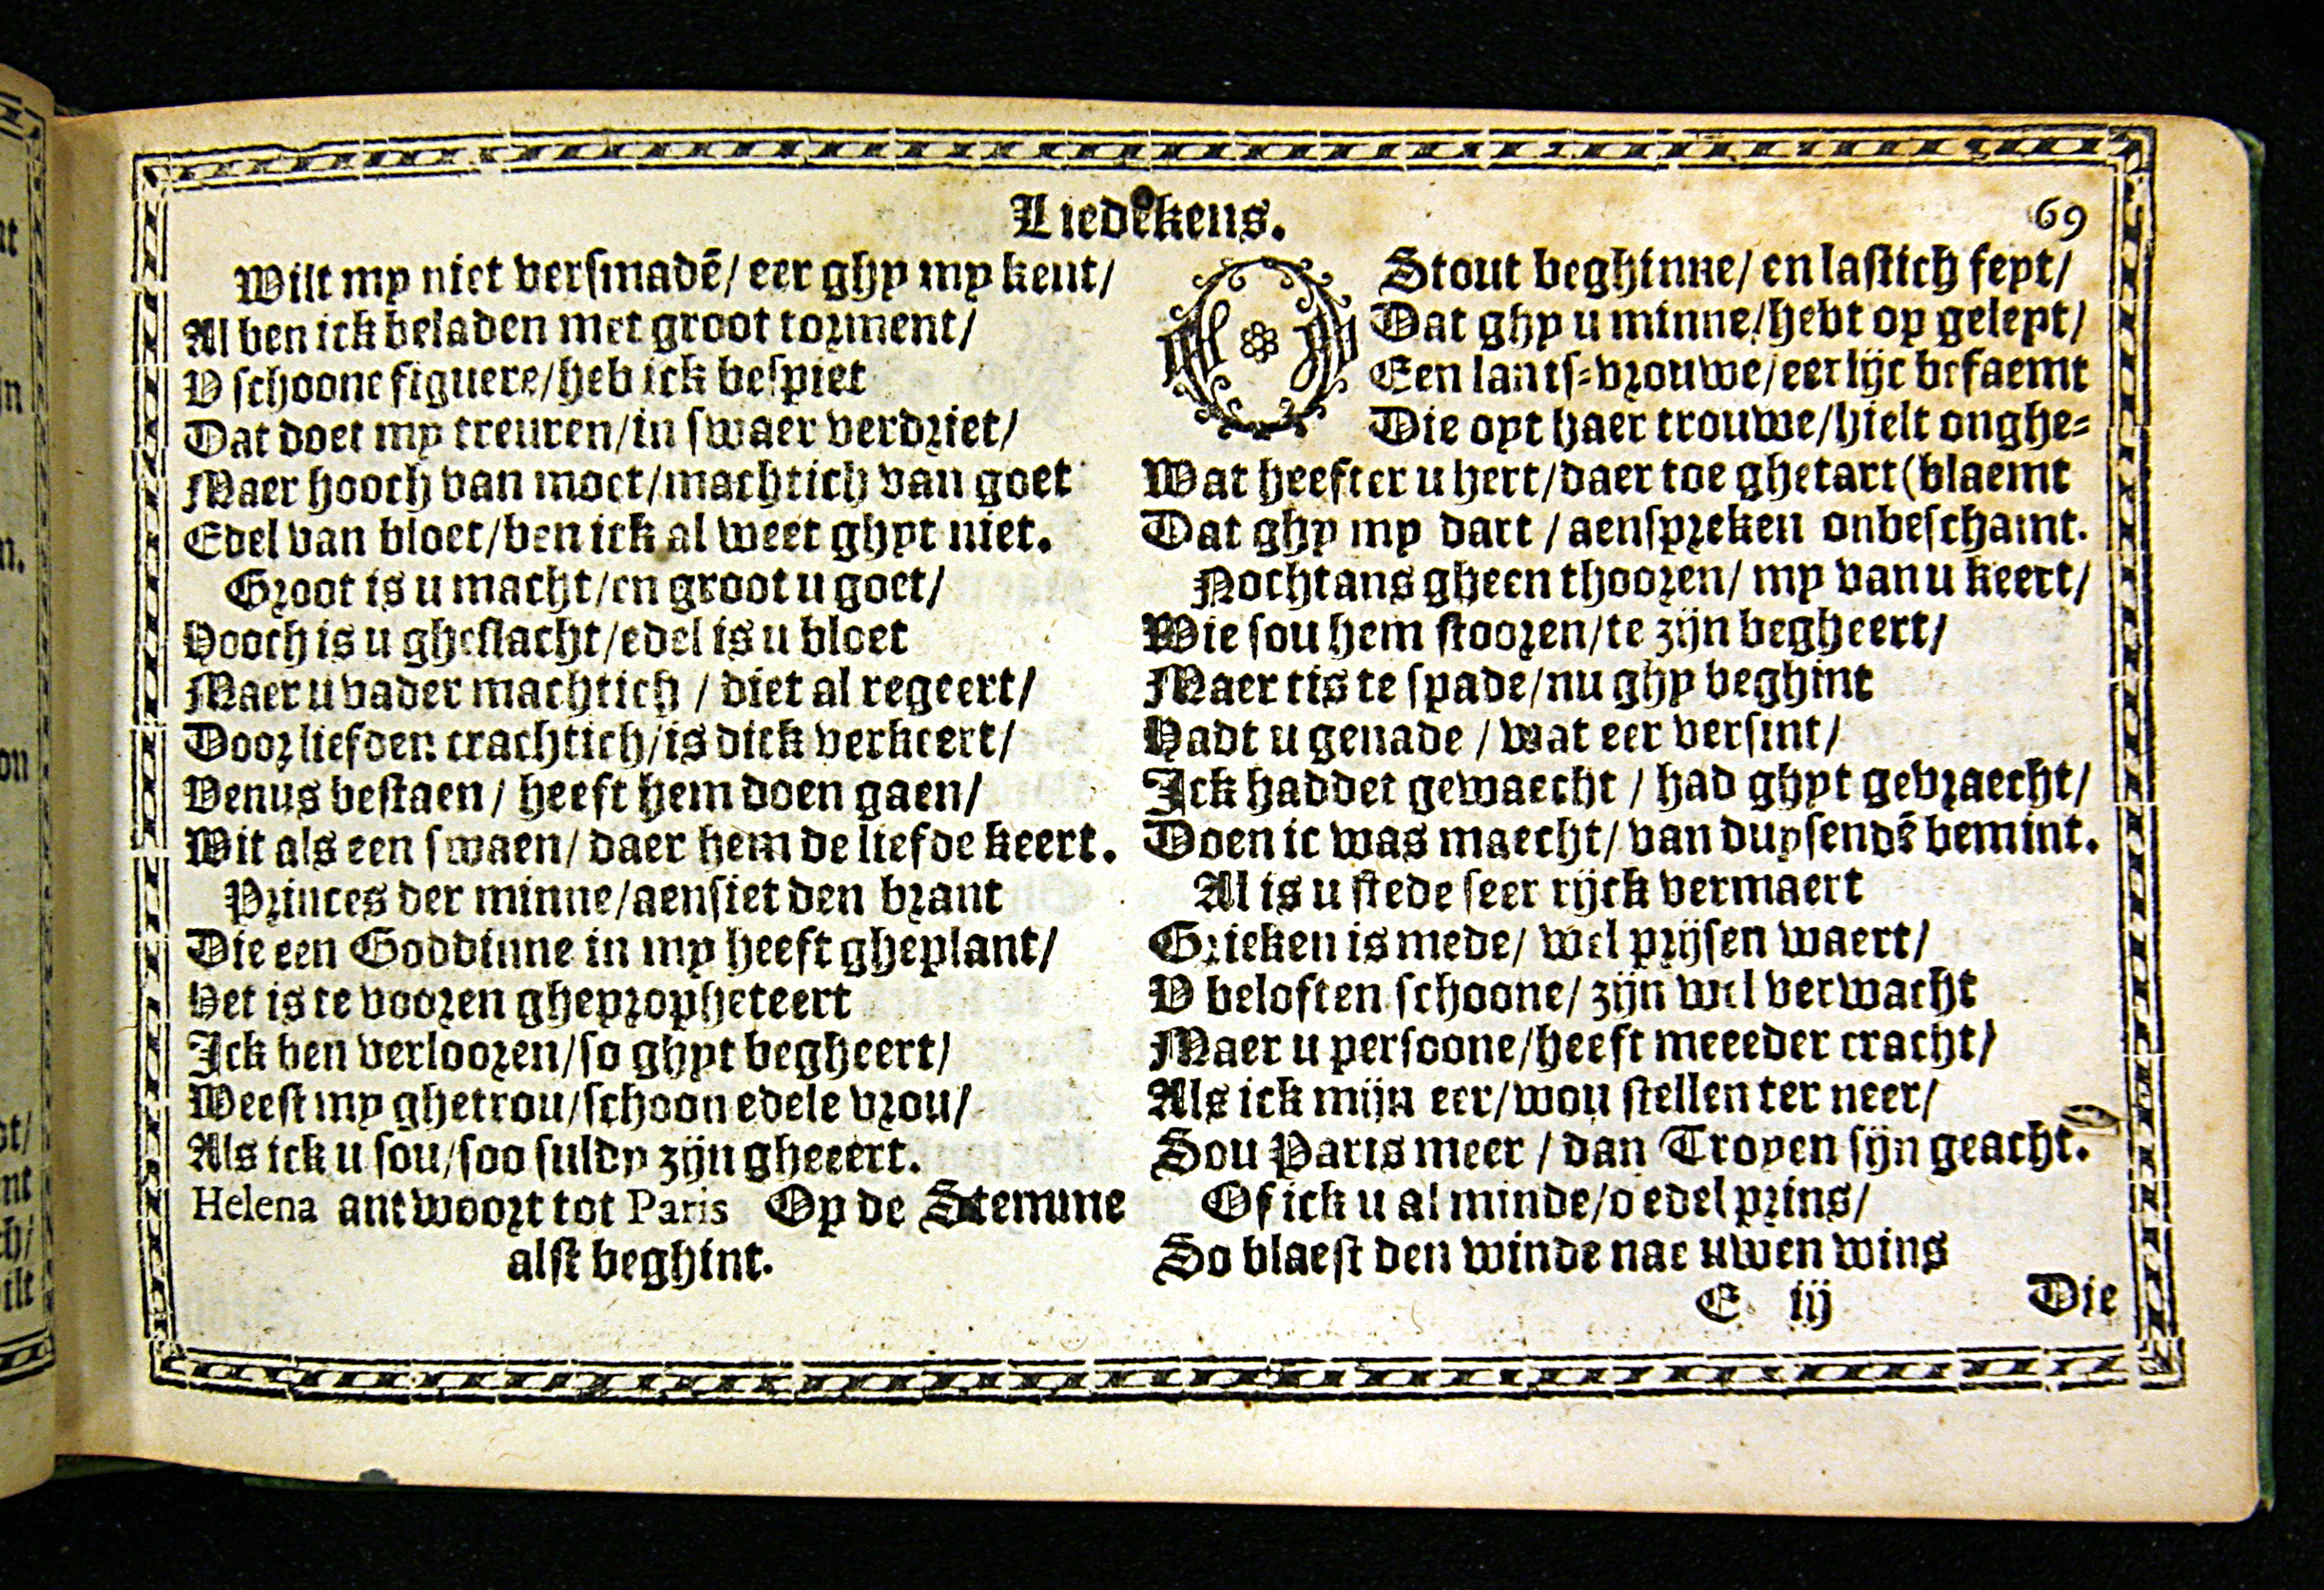 Liedekens.
69
Wilt my niet versmadē/ eer ghy my kent/
Al ben ick beladen met groot torment/
V schoone figuere/heb ick bespiet
Dat doet my treuren/in swaer verdriet/
Maer hooch van moet/machtich van goet
Edel van bloet/ben ick al weet ghyt niet.
Groot is u macht/en groot u goet/
Hooch is u gheslacht/edel is u bloet
Maer u vader machtich / diet al regeert/
Door liefden crachtich/is dick verkeert/
Venus bestaen / heeft hem doen gaen/
Wit als een swaen/ daer hem de liefde keert.
Princes der minne/aensiet den brant
Die een Goddinne in my heeft gheplant/
Het is te vooren ghepropheteert
Ick ben verlooren/so ghyt begheert/
Weest my ghetrou/schoon edele vrou/
Als ick u sou/soo suldy zijn gheeert.
Helena antwoort tot Paris Op de Stemme
alst beghint.
O Stout beghinne/ en lastich feyt/
Dat ghy u minne/hebt op geleyt/
Een lants-vrouwe/eerlijc befaemt
Die oyt haer trouwe/hielt onghe-
Wat heefter u hert/daer toe ghetart (blaemt
Dat ghy my dart / aenspreken onbeschamt.
Nochtans gheen thooren/ my van u keert/
Wie sou hem stooren/te zijn begheert/
Maer tis te spade/nu ghy beghint
Hadt u genade / wat eer versint/
Ick haddet gewaecht / had ghyt gevraecht/
Doen ic was maecht/ van duysendē bemint.
Al is u stede seer rijck vermaert
Grieken is mede/ wel prijsen waert/
V beloften schoone/ zijn wel verwacht
Maer u persoone/heeft meeeder cracht/
Als ick mijn eer/wou stellen ter neer/
Sou Paris meer / dan Troyen sijn geacht.
Of ick u al minde/o edel prins/
So blaest den winde nae uwen wins
E iij
Die